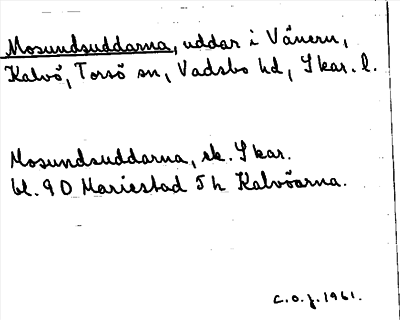 Mosundsuddarna, uddar i Vänern,
Kalvö, Torsö sn, Vadsbo hd, Skar. l.
Mosundsuddarna, ek. Skar.
bl. 9 D Mariestad 5 h Kalvöarna.
C.O.J. 1961.